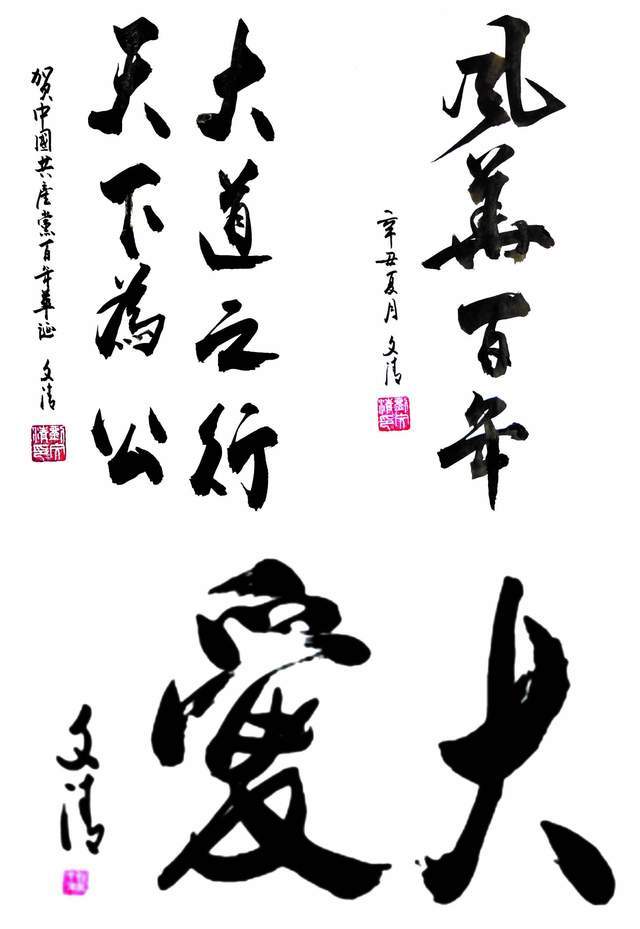 大道之行
天下為公
賀中國共產黨百年華誕 文清
風華百年
辛丑夏月 文清
大愛
文清